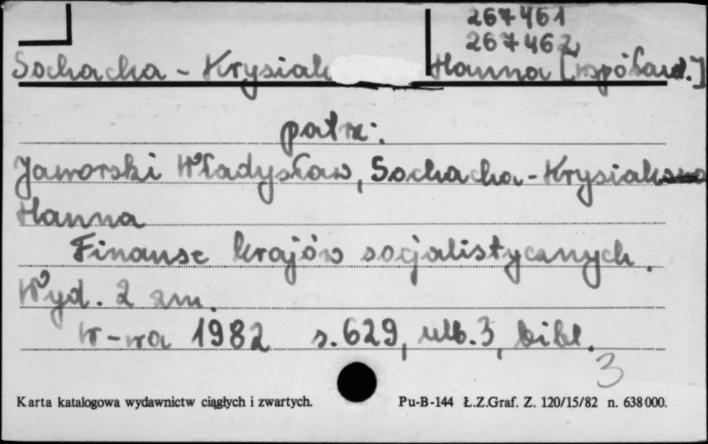 267461
267462
Sochacka - Krysiak Hanna [współaut.]
patrz:
Jaworski Władysław, Sochacka-Krysiak
Hanna
Finanse krajów socjalistycznych.
Wyd. 2 zm.
W-wa 1982 s. 629, nlb. 3, bibl.
3
Karta katalogowa wydawnictw ciągłych i zwartych. Pu-B-144 Ł.Z.Graf. Z. 120/15/82 n. 638000.